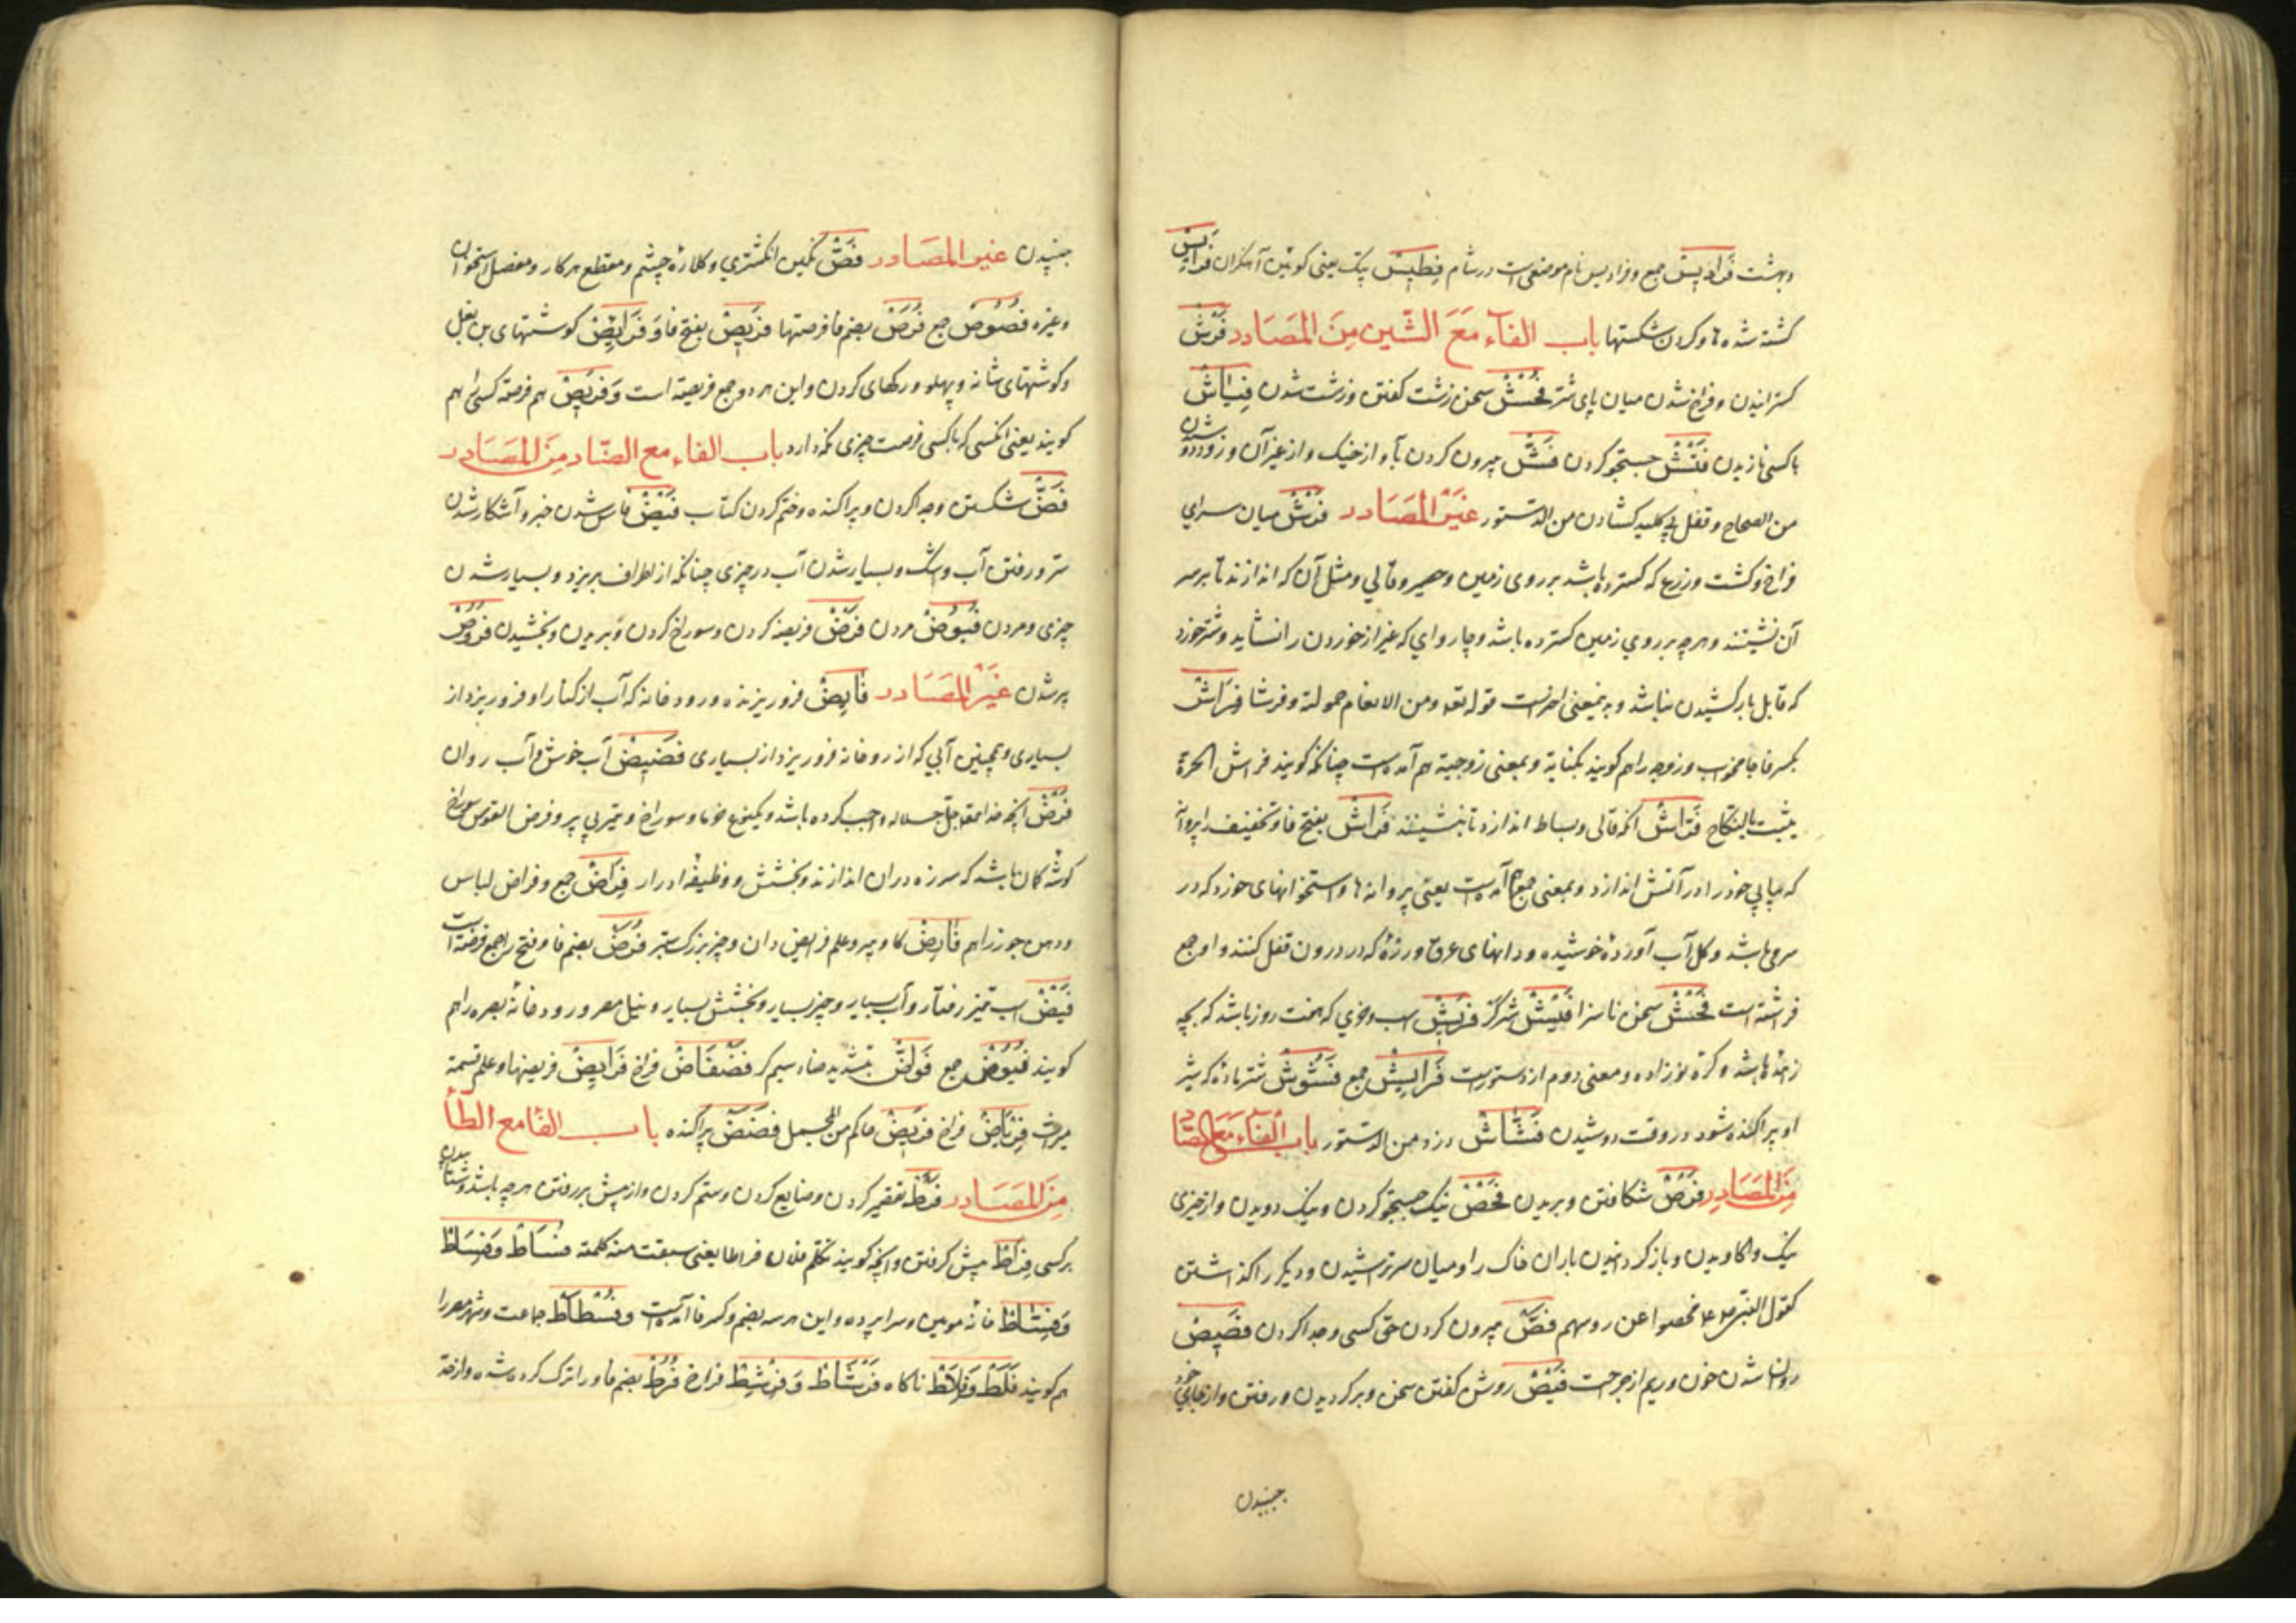 وبهشت فَرَادِیس جمع و فرادیس نام موضعی است در شام فِطِّیس پتک یعنی کوبین آهنگران فَرَایِس
کشته شده‌ها و کردن شکستها باب الفآء مَعَ الشّین مِنَ المَصَادر فَرْش
کسترانیدن و فراخ شدن میان پای شتر فُحْش سخن زشت کفتن و زشت شدن فِیَاش
با کسی نازیدن فَتْش جستجو کردن فَشّ بیرون کردن باد از خیک و از غیر آن و زود دوشیدن
من الصحاح و قفل بی کلید کشادن من الدستور غَیْر المَصَادر فَرْش میان سرای
فراخ و کشت و زرع که کسترده باشد بر روی زمین و حصیر و قالی و مثل آن که اندازند تا بر سر
آن نشینند و هرچه بر روی زمین کسترده باشد و چاروای که غیر از خوردن را نشاید و شتر خورد
که قابل بار کشیدن نباشد و به همین معنی اخرست قوله تعه ومن الانعام حمولة وفرشا فِرَاش
بکسر فا جامه خوب و زوجه را هم کویند بکنایة و بمعنی زوجیة هم آمده است چنانکه کویند فراش الحرة
یثبت بالنکاح فَرَّاش آنکه قالی و بساط اندازد تا بنشینند فَرَاش بفتح فا و تخفیف را پروانه
که بیابی خود را در آتش اندازد و بمعنی جمع هم آمده است یعنی پروانه‌ها و استخوانهای خورد که در
سر می باشد و کل آب آورده خوشیده و دانهای عرق و رزه که در درون قفل کنند و او جمع
فراشة است فُحْش سخن ناسزا فَیْش سر کز فَرِیش اسب و خری که هفت روز باشد که بچه
زاده باشد و کره نوزاده و معنی دوم از دستورست فَرَایِش جمع فَشُوش شتر ماده که شیر
او پراکنده شود در وقت دوشیدن فَشَّاش دزد من الدستور باب الفآء مَعَ الصّاد
مِنَ المَصَادِر فَرْص شکافتن و بریدن فَحْص نیک جستجو کردن و نیک دویدن و از چیزی
نیک واکاویدن و باز کردانیدن باران خاک را و میان سر تراشیدن و دیکر را کذاشتن
کقول النبی علیه السلام فحصوا عن روسهم فَصّ بیرون کردن حق کسی و جدا کردن فَصِیص
روان شدن خون و ریم از جرحت فَیْص روشن کفتن سخن و برکردیدن و رفتن و از جای خود
جنبیدن
جنبیدن غیر المَصَادر فَصّ نکین انکشتری و کلاژه چشم و مقطع هر کار و مفصل استخوان
وغیره فُصُوص جمع فُرَص بضم فا فرصتها فَرِیص بفتح فا وَ فَرَایِص کوشتهای بن بغل
و کوشتهای شانه و پهلو و رکهای کردن و این هر دو جمع فریصة است وَ فَرِیص هم فرصة کسی را هم
کویند یعنی انکسی که با کسی فرصت چیزی نکه دارد باب الفاء مع الضّاد مِنَ المَصَادر
فَضّ شکستن و جدا کردن و پراکنده و ختم کردن کتاب فَیْض فاش شدن خبر و آشکار شدن
سر و رفتن آب و اشک و بسیار شدن آب در چیزی چنانکه از اطراف بریزد و بسیار شدن
چیزی و مردن فُیُوض مردن فَرْض فریضه کردن و سوراخ کردن و بریدن و بخشیدن فُرُوض
پر شدن غَیْر المَصَادر فَایِض فرو ریزنده و رودخانه که آب از کنار او فرو ریزد از
بسیاری و همچنین آبی که از رودخانه فرو ریزد از بسیاری فَضِیض آب خوش و آب روان
فَرْض آنچه خدا تعه جل جلاله واجب کرده باشد و یکنوع خرما و سوراخ و تیر بی پر و فرض القوس سوراخ
کوشه کمان باشد که سر زه دران اندازند و بخشش و وظیفه ادرار فِرَاض جمع و فراض لباس
ودهن جوز راهم فَارِض کاو پیر و علم فرایض دان و چیز بزرک ستبر فُرَض بضم فا و فتح را جمع فرضة است
فَیْض اسب تیز رفتار و آب بسیار و چیز بسیار و بخشش بسیار و نیل مصر و رودخانه بصره را هم
کویند فُیُوض جمع فَوَاضّ بتشدید ضاد سیم کر فَضْفَاض فراخ فَرَایِض فریضها و علم قسمة
میراث فِرْیَاض فراخ فَرِیض حاکم من المجمل فَضَض پراکنده باب الفا مع الطا
مِنَ المَصَادر فَرْط تقصیر کردن و ضایع کردن و ستم کردن و از پیش بر رفتن هرچه باشد و شتابیدن
بر کسی فِرَاط پیش کرفتن و آنچه کویند تکلم فلان فراطا یعنی سبقت منه کلمة فُسَاط وَ فِسَاط
وَ فُسْتَاط خانه مویین و سراپرده و این هر سه بضم و کسر فا آمده است و فُسْطَاط جماعت و شهر مصر را
هم کویند فَلَط وَ فِلَاط ناکاه فِرْشَاط وَ فِرْشِط فراخ فُرُط بضم فا و را ترک کرده شده و از حد